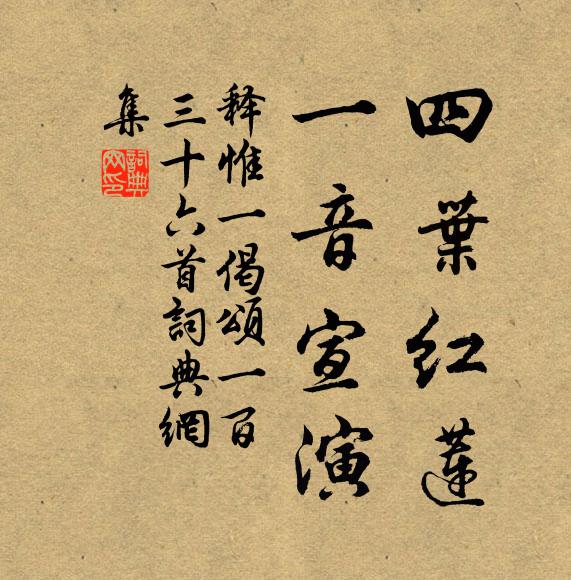 四葉紅蓮
一音宣演
释惟一偈頌一百
三十六首詞典網
集
詞典
网印